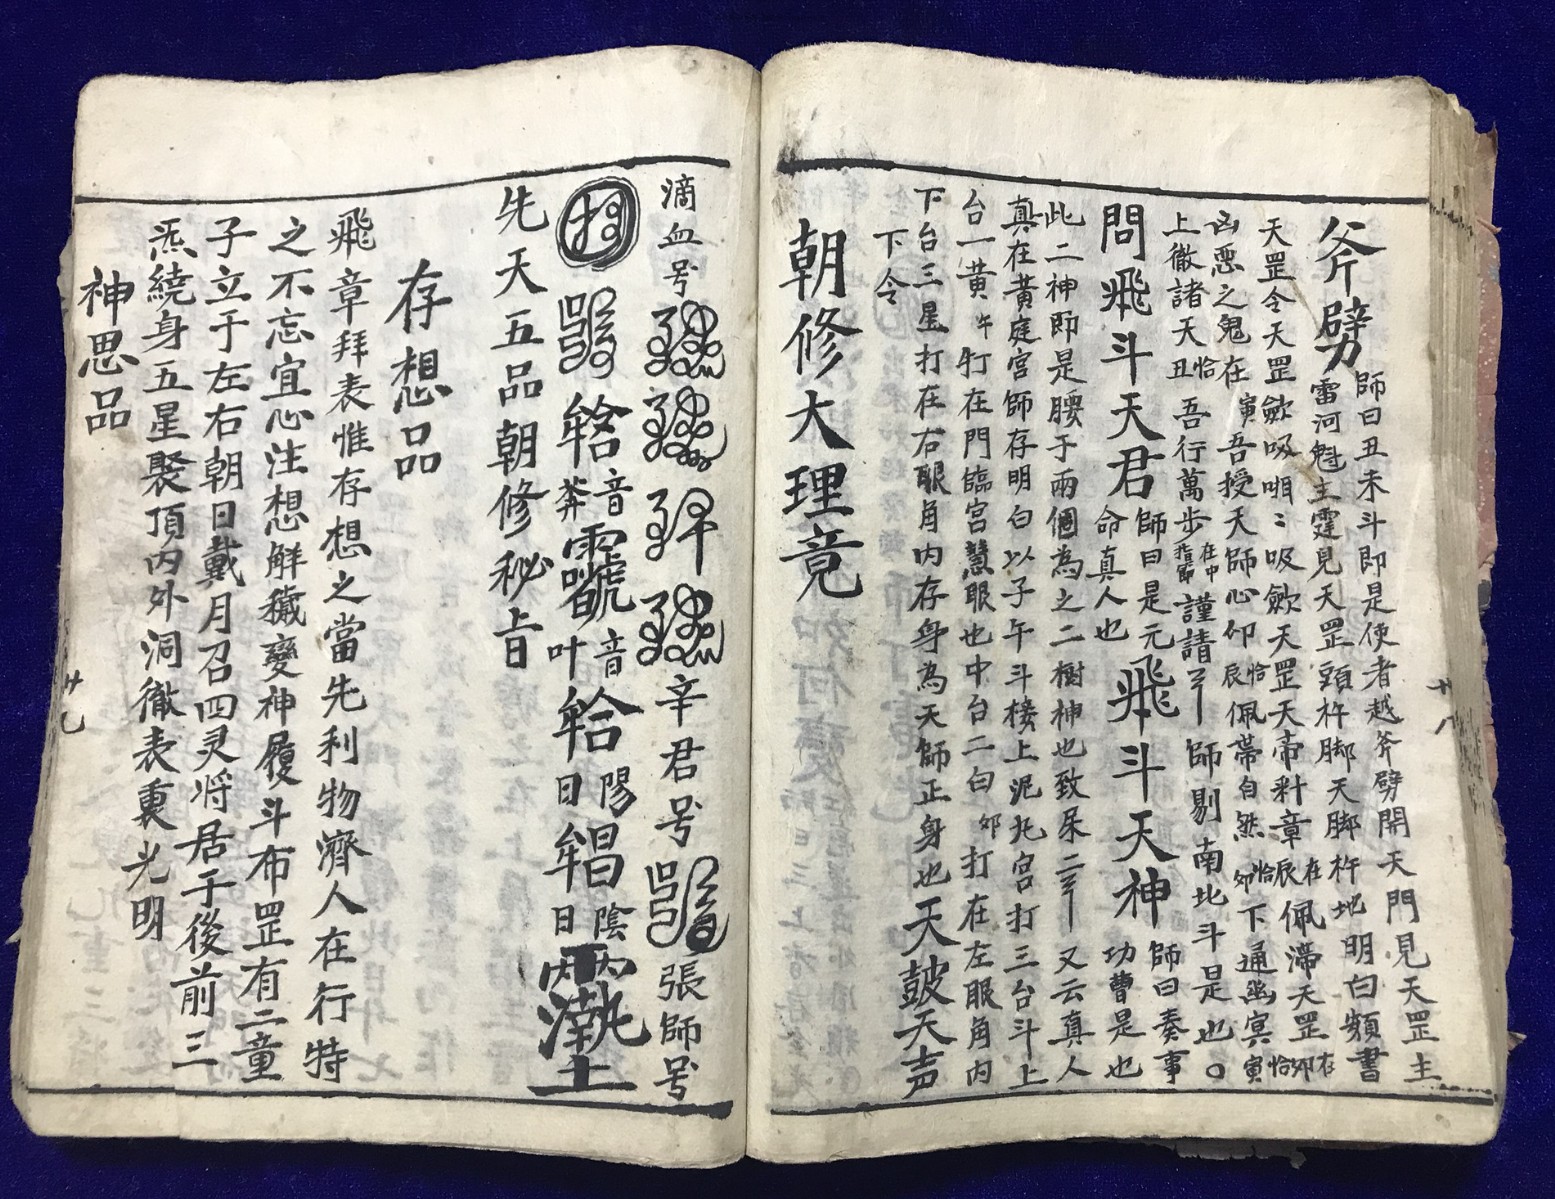 斧劈
師曰丑未斗即是使者越斧劈開天門見天罡主
雷河魁主霆見天罡頭杵脚天脚杵地明白類書
天罡令天罡歛吸呬〻吸歛天罡天帝料章在辰佩滯天罡在卯恰寅
凶惡之鬼在寅吾授天師心印恰辰佩帶自然恰卯下通幽冥
上徹諸天恰丑吾行萬步在中指節謹請 師剔南北斗是也〇
問飛斗天君師曰是元命真人也飛斗天神師曰奏事功曹是也
此二神即是腰于兩個為之二樹神也致杀二 又云真人
真在黃庭宮師存明白以子午斗樓上泥丸宮打三台斗上
台一黄午打在門臨宮慧眼也中台二白卯打在左眼角内
下台三星打在右眼角内存身為天師正身也天鼓天声
下令
朝修大理竟
滴血号 辛君号 張師号
音 音 叶 陽日 陰日
先天五品朝修秘旨
存想品
飛章拜表惟存想之當先利物濟人在行特
之不忘宜心注想解穢變神履斗布罡有二童
子立于左右朝日戴月召四灵将居于後前三
炁繞身五星聚頂内外洞徹表裏光明
神思品
廿八
廿七